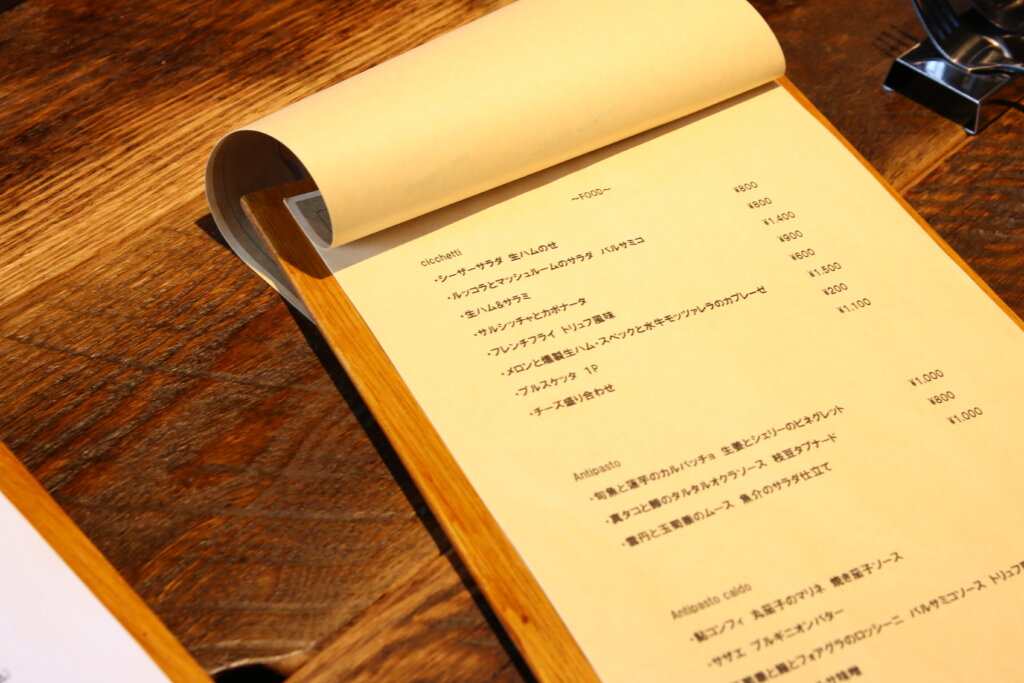 ～FOOD～
cicchetti
・シーザーサラダ 生ハムのせ ¥800
・ルッコラとマッシュルームのサラダ バルサミコ ¥800
・生ハム&サラミ ¥1.400
・サルシッチャとカポナータ ¥900
・フレンチフライ トリュフ風味 ¥600
・メロンと燻製生ハム・スペックと水牛モッツァレラのカプレーゼ ¥1.500
・ブルスケッタ 1P ¥200
・チーズ盛り合わせ ¥1.100
Antipasto
・旬魚と蓮芋のカルパッチョ 生姜とシェリーのビネグレット ¥1.000
・真タコと鱒のタルタルオクラソース 枝豆タプナード ¥800
・雲丹と玉蜀黍のムース 魚介のサラダ仕立て ¥1.000
Antipasto caldo
・鮎コンフィ 丸茄子のマリネ 焼き茄子ソース
・サザエ ブルギニオンバター
玉蜀黍と鶏とフォアグラのロッシーニ バルサミコソース トリュフ